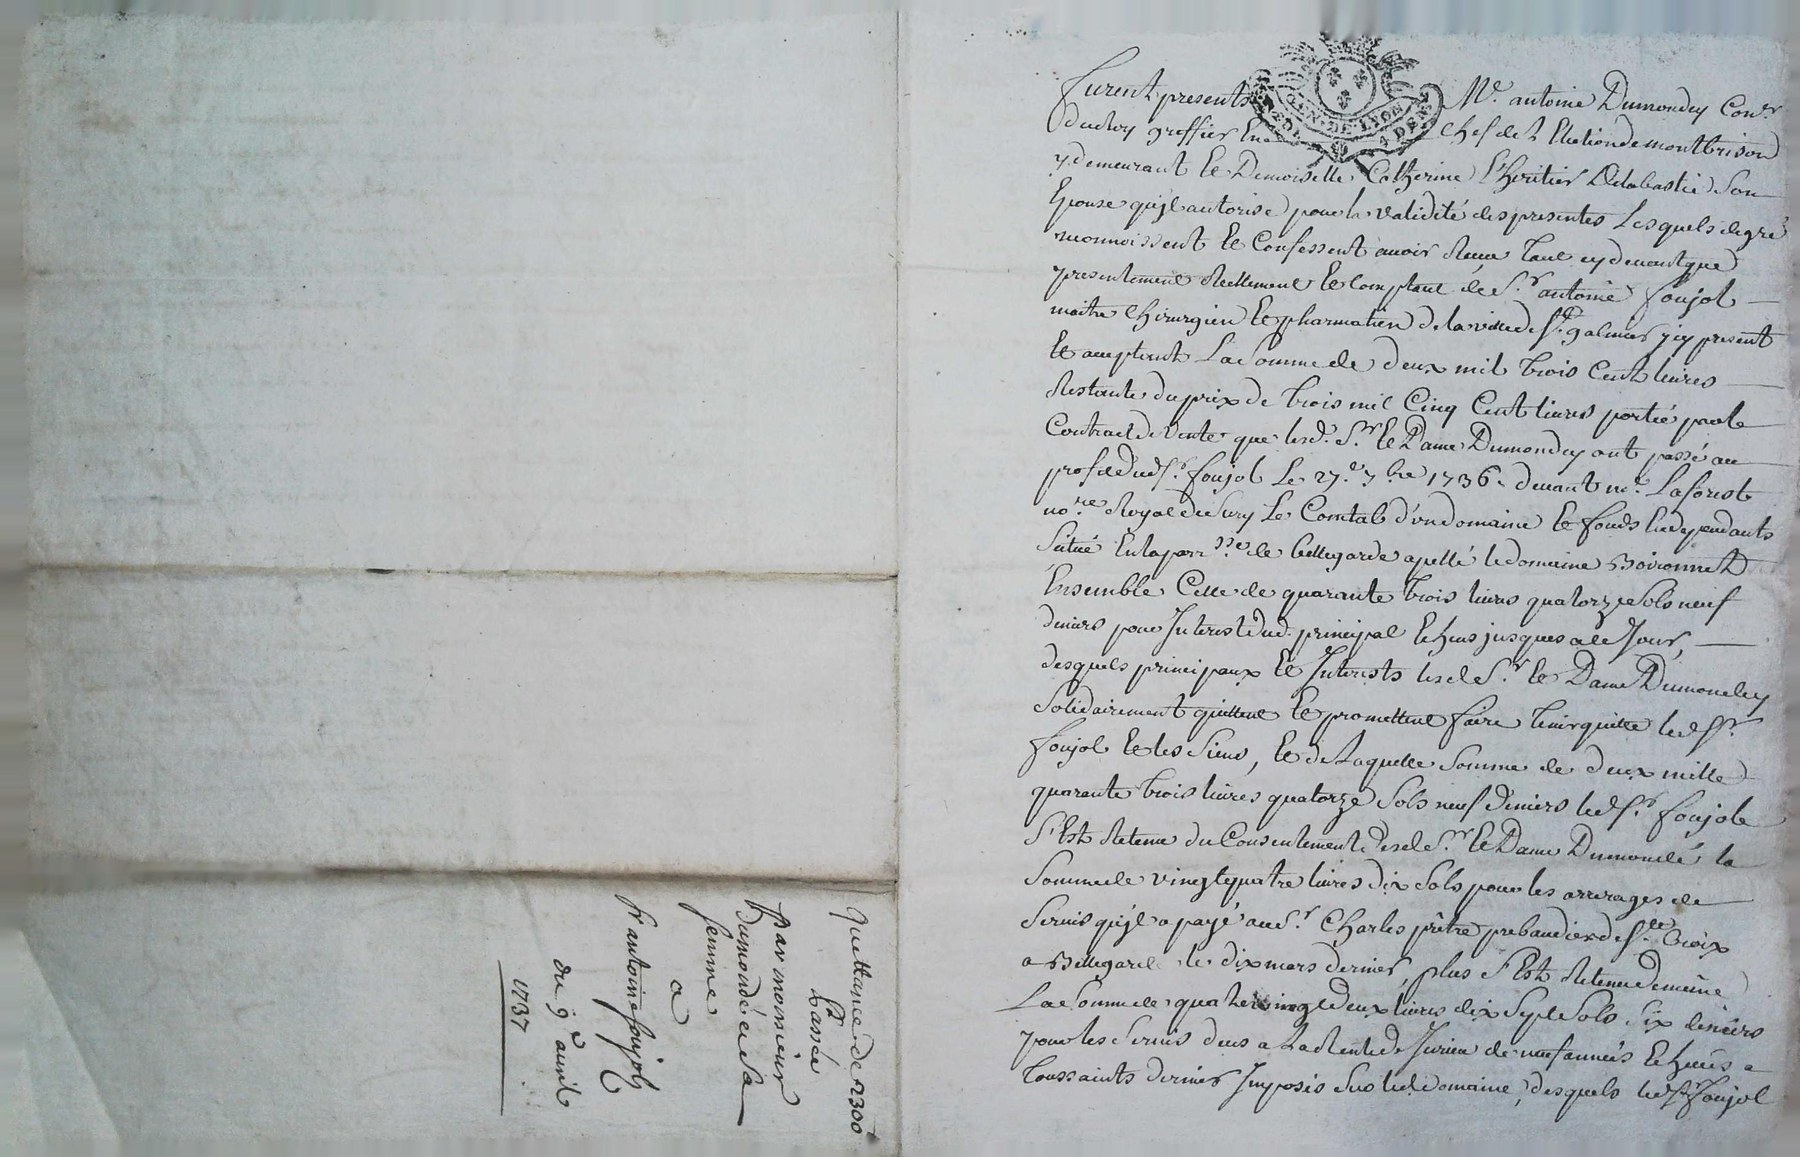 Furent presents Mr. antoine Dumondey Con.er
du Roy greffier En chef de l'Election de montbrison
y demeurant Et Demoiselle Catherine l'heritier Delabastie Son
Epouse qu'jl autorise pour la validité des presentes Lesquels de gré
reconnoissent Et Confessent avoir Receu tant cy devant que
presentement Reellement Et Comptant de S.r antoine foujol
maitre Chirurgien Et pharmatien de la ville de St. galmier jcy present
Et acceptant La Somme de deux mil trois Cent livres
Restante du prix de trois mil Cinq Cent livres portée par le
Contract de Vente que lesd. S.r Et Dame Dumondey ont passé au
profit dud Sr. foujol Le 27.e 7.bre 1736. devant me. Laforest
no.re Royal de Sury Le Comtal d'un domaine Et fonds En dependants
Situé En la parr.sse de bellegarde apellé le domaine Boironnet
Ensemble Celle de quarante trois livres quatorze Sols neuf
deniers pour Interest dud. principal Echeus jusques a Ce Jour,
desquels principaux Et Interests lesd S.r Et Dame Dumondey
Solidairement quittent Et promettent faire tenir quitte led Sr.
foujol Et les Siens, Et de Laquelle Somme de deux mille
quarante trois livres quatorze Sols neuf deniers led Sr. foujole
S'Est Retenu du Consentement desd S.r Et Dame Dumondé la
Somme de vingt quatre livres dix Sols pour les arrerages de
Servis qu'jl a payé au S.r Charles prêtre prebandier de Ste. Croix
a Bellegarde le dix mars dernier, plus S'Est Retenu de même
La Somme de quatre vingt deux livres dix Sept Sols Six deniers
pour les Servis deus a La Rente de Jurieu de neuf années Echeües a
toussaints dernier Imposés Sur led domaine, desquels led Sr. foujol
quittance de 2300
passée
par monsieur
dumondé et sa
femme
a
sr antoine foujols
du 9e avril
1737